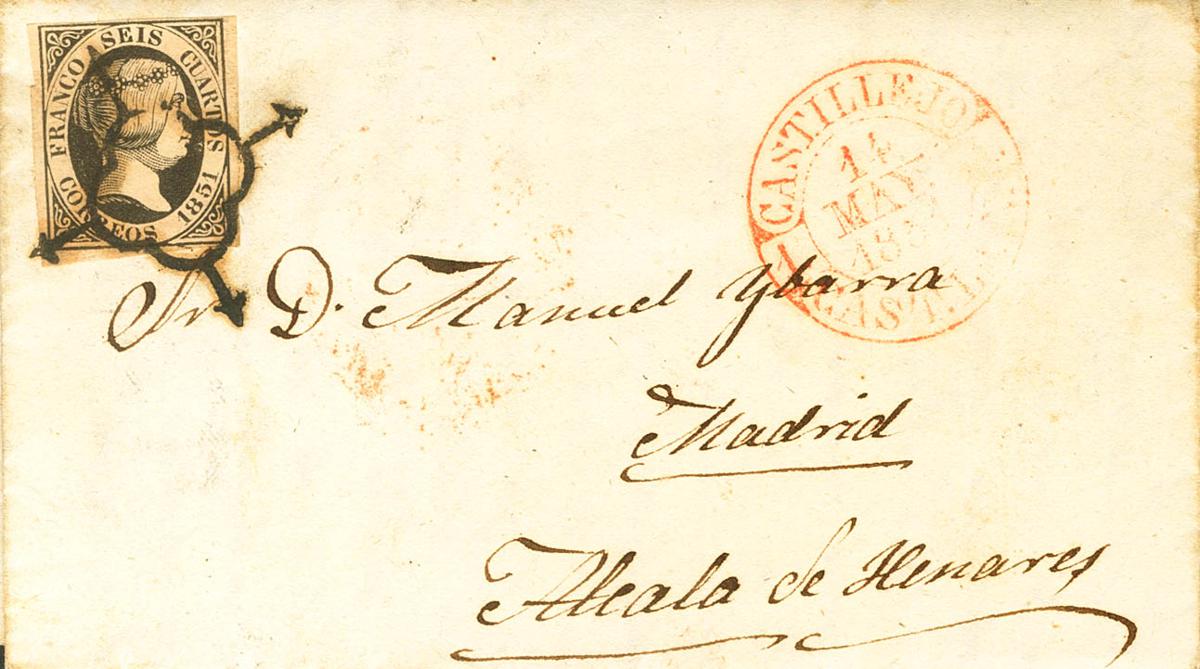 FRANCO A SEIS CUARTOS
CORREOS 1851
CASTILLEJO
MAY
CAST.
Sr. D. Manuel Ybarra
Madrid
Alcala de Henares